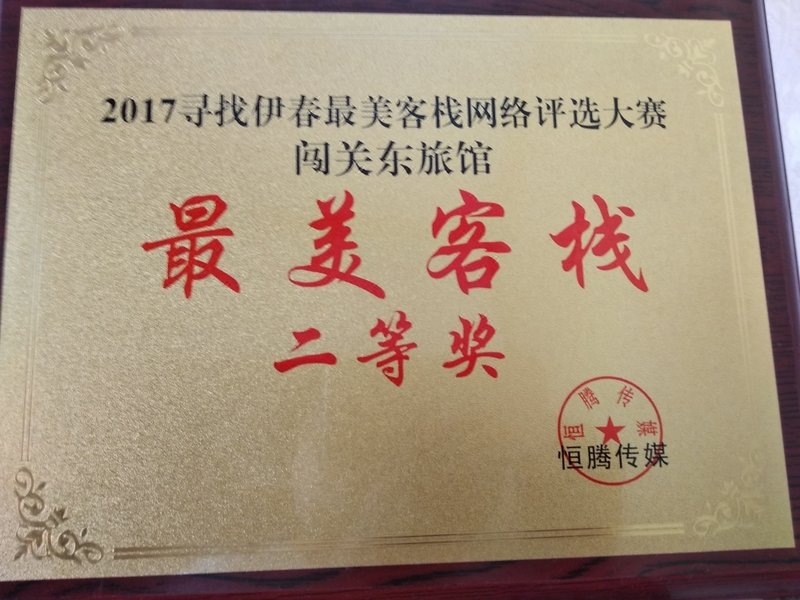 2017寻找伊春最美客栈网络评选大赛
闯关东旅馆
最美客栈
二等奖
恒腾传媒
恒腾传媒